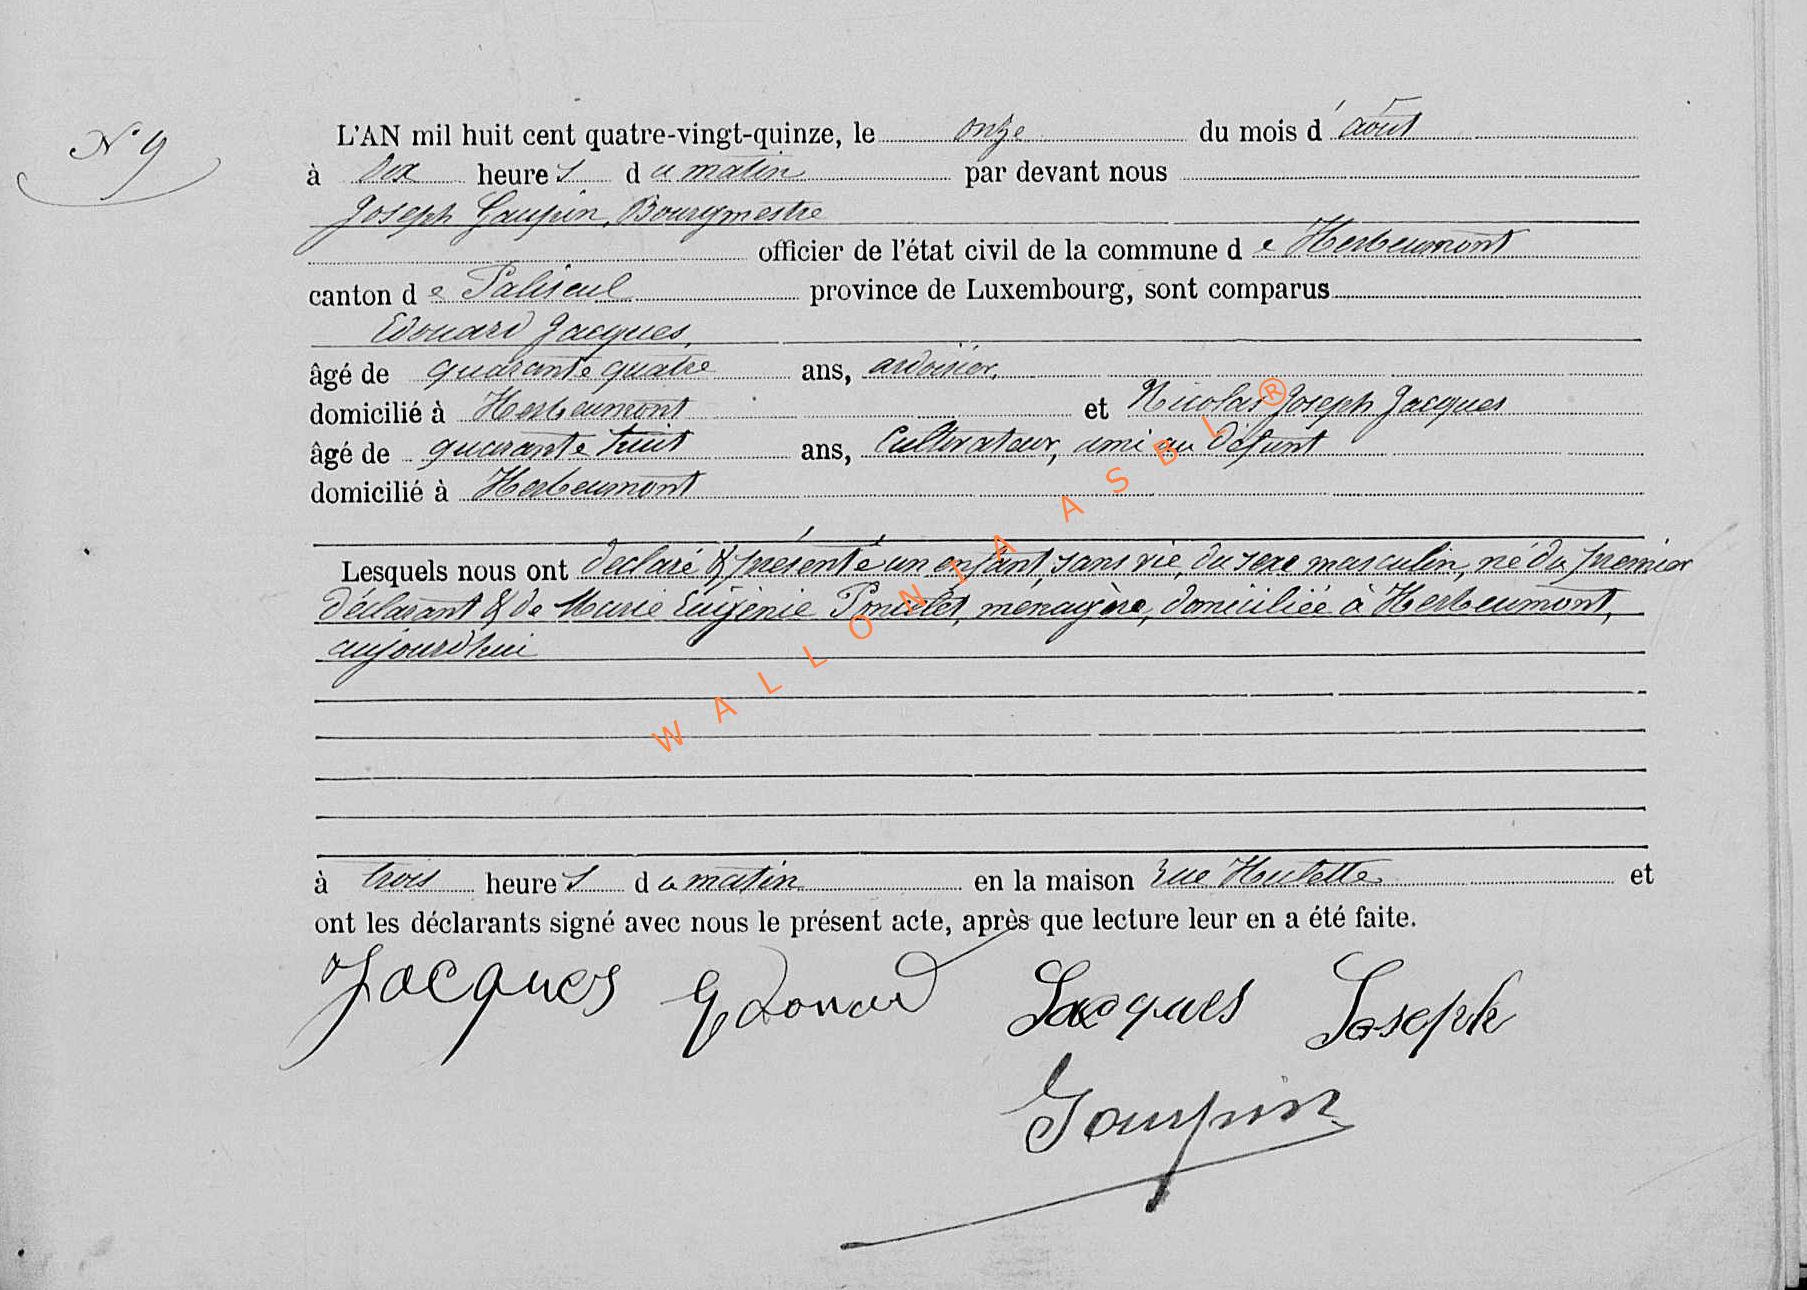 N° 9
L'AN mil huit cent quatre-vingt-quinze, le onze du mois d'août
à dix heures du matin par devant nous
Joseph Gaupin, Bourgmestre
officier de l'état civil de la commune de Herbeumont
canton de Paliseul province de Luxembourg, sont comparus
Edouard Jacques,
âgé de quarante quatre ans, ardoisier,
domicilié à Herbeumont et Nicolas Joseph Jacques
âgé de quarante huit ans, Cultivateur, ami au défunt
domicilié à Herbeumont
Lesquels nous ont déclaré & présenté un enfant, sans vie, du sexe masculin, né du premier
déclarant & de Marie Eugènie Poncelet, ménagère, domiciliée à Herbeumont,
aujourd'hui
à trois heures du matin en la maison rue Hulette et
ont les déclarants signé avec nous le présent acte, après que lecture leur en a été faite.
Jacques Edouard Jacques Joseph
Gaupin
WALLONIA ASBL ®